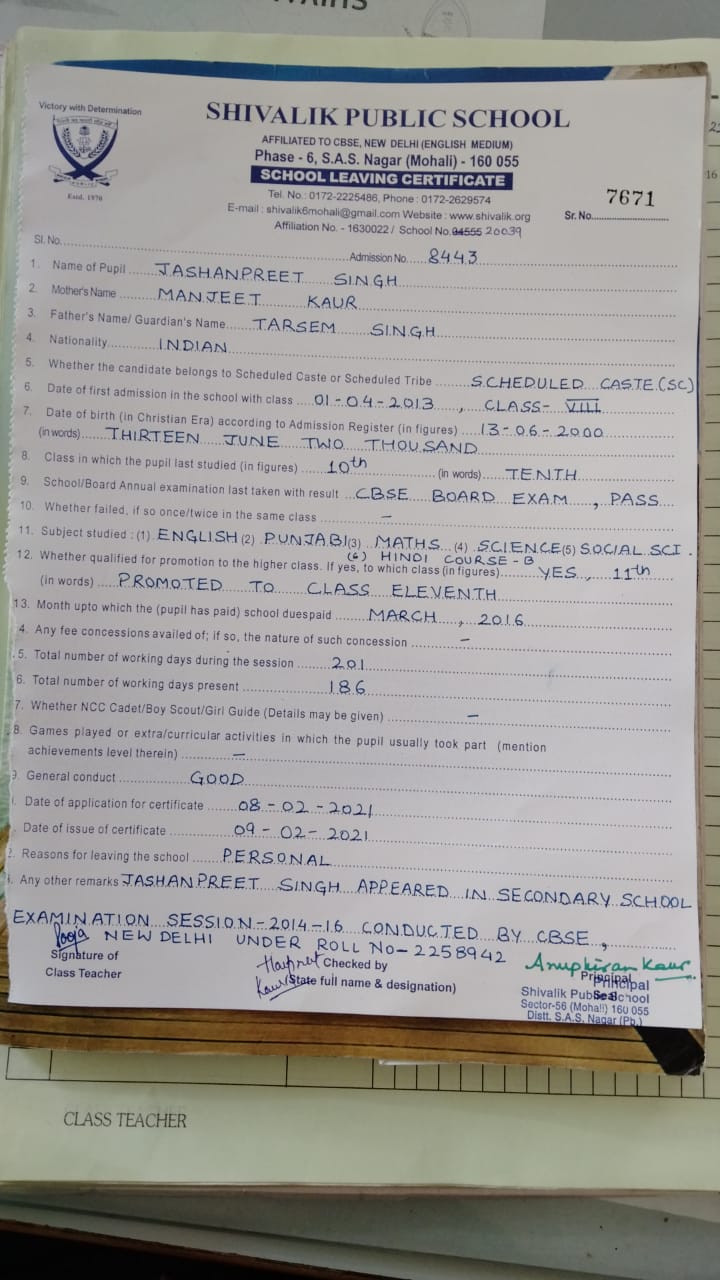 Victory with Determination
Estd. 1970
SHIVALIK PUBLIC SCHOOL
AFFILIATED TO CBSE, NEW DELHI (ENGLISH MEDIUM)
Phase - 6, S.A.S. Nagar (Mohali) - 160 055
SCHOOL LEAVING CERTIFICATE
Tel. No.: 0172-2225486, Phone : 0172-2629574
E-mail : shivalik6mohali@gmail.com Website : www.shivalik.org
Affiliation No. - 1630022 / School No. 04555 20039
7671
Sr. No.
Sl. No. Admission No. 8443
1. Name of Pupil JASHANPREET SINGH
2. Mother's Name MANJEET KAUR
3. Father's Name/ Guardian's Name TARSEM SINGH
4. Nationality INDIAN
5. Whether the candidate belongs to Scheduled Caste or Scheduled Tribe SCHEDULED CASTE (SC)
6. Date of first admission in the school with class 01-04-2013, CLASS- VIII
7. Date of birth (in Christian Era) according to Admission Register (in figures) 13-06-2000
(in words) THIRTEEN JUNE TWO THOUSAND
8. Class in which the pupil last studied (in figures) 10th (in words) TENTH
9. School/Board Annual examination last taken with result CBSE BOARD EXAM, PASS
10. Whether failed, if so once/twice in the same class –
11. Subject studied : (1) ENGLISH (2) PUNJABI (3) MATHS (4) SCIENCE (5) SOCIAL SCI.
(6) HINDI COURSE - B
12. Whether qualified for promotion to the higher class. If yes, to which class (in figures) YES, 11th
(in words) PROMOTED TO CLASS ELEVENTH
13. Month upto which the (pupil has paid) school duespaid MARCH, 2016
4. Any fee concessions availed of; if so, the nature of such concession –
5. Total number of working days during the session 201
6. Total number of working days present 186
7. Whether NCC Cadet/Boy Scout/Girl Guide (Details may be given) –
8. Games played or extra/curricular activities in which the pupil usually took part (mention
achievements level therein) –
9. General conduct GOOD
Date of application for certificate 08-02-2021
Date of issue of certificate 09-02-2021
Reasons for leaving the school PERSONAL
Any other remarks JASHANPREET SINGH APPEARED IN SECONDARY SCHOOL
EXAMINATION SESSION-2014-16 CONDUCTED BY CBSE,
NEW DELHI UNDER ROLL No- 2258942
Pooja
Signature of
Class Teacher
Harpreet Kaur
Checked by
(State full name & designation)
Anupkiran Kaur
Principal
Seal
Principal
Shivalik Public School
Sector-56 (Mohali) 160 055
Distt. S.A.S. Nagar (Pb.)
CLASS TEACHER